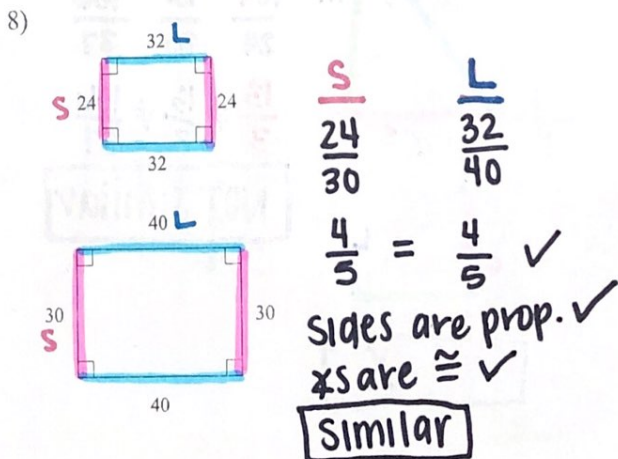 8)
32 L
S 24 24
32
40 L
30 30
S
40
S L
24/30 32/40
4/5 = 4/5 ✓
sides are prop. ✓
∡s are ≅ ✓
Similar